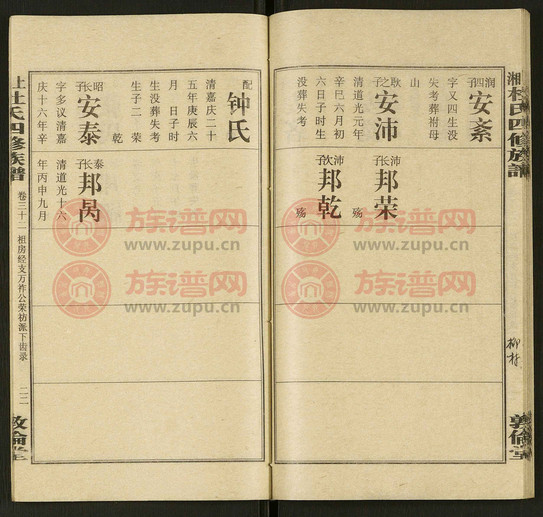 氏四修族譜
敦倫堂
柳村
润四子
安紊
字又四生没
失考葬祔母
山
耿之子
安沛
清道光元年
辛巳六月初
六日子时生
没葬失考
沛长子
邦荣
殇
沛次子
邦乾
殇
配
钟氏
清嘉庆二十
五年庚辰六
月 日子时
生没葬失考
生子二 荣
乾
昭长子
安泰
字多议清嘉
庆十六年辛
泰长子
邦
清道光十六
年丙申九月
杜氏四修族譜
卷三十二
祖房经支万祚公荣枋派下齿录
二二
敦倫堂
族谱网
www.zupu.cn
族谱网
www.zupu.cn
族谱网
www.zupu.cn
族谱网
www.zupu.cn